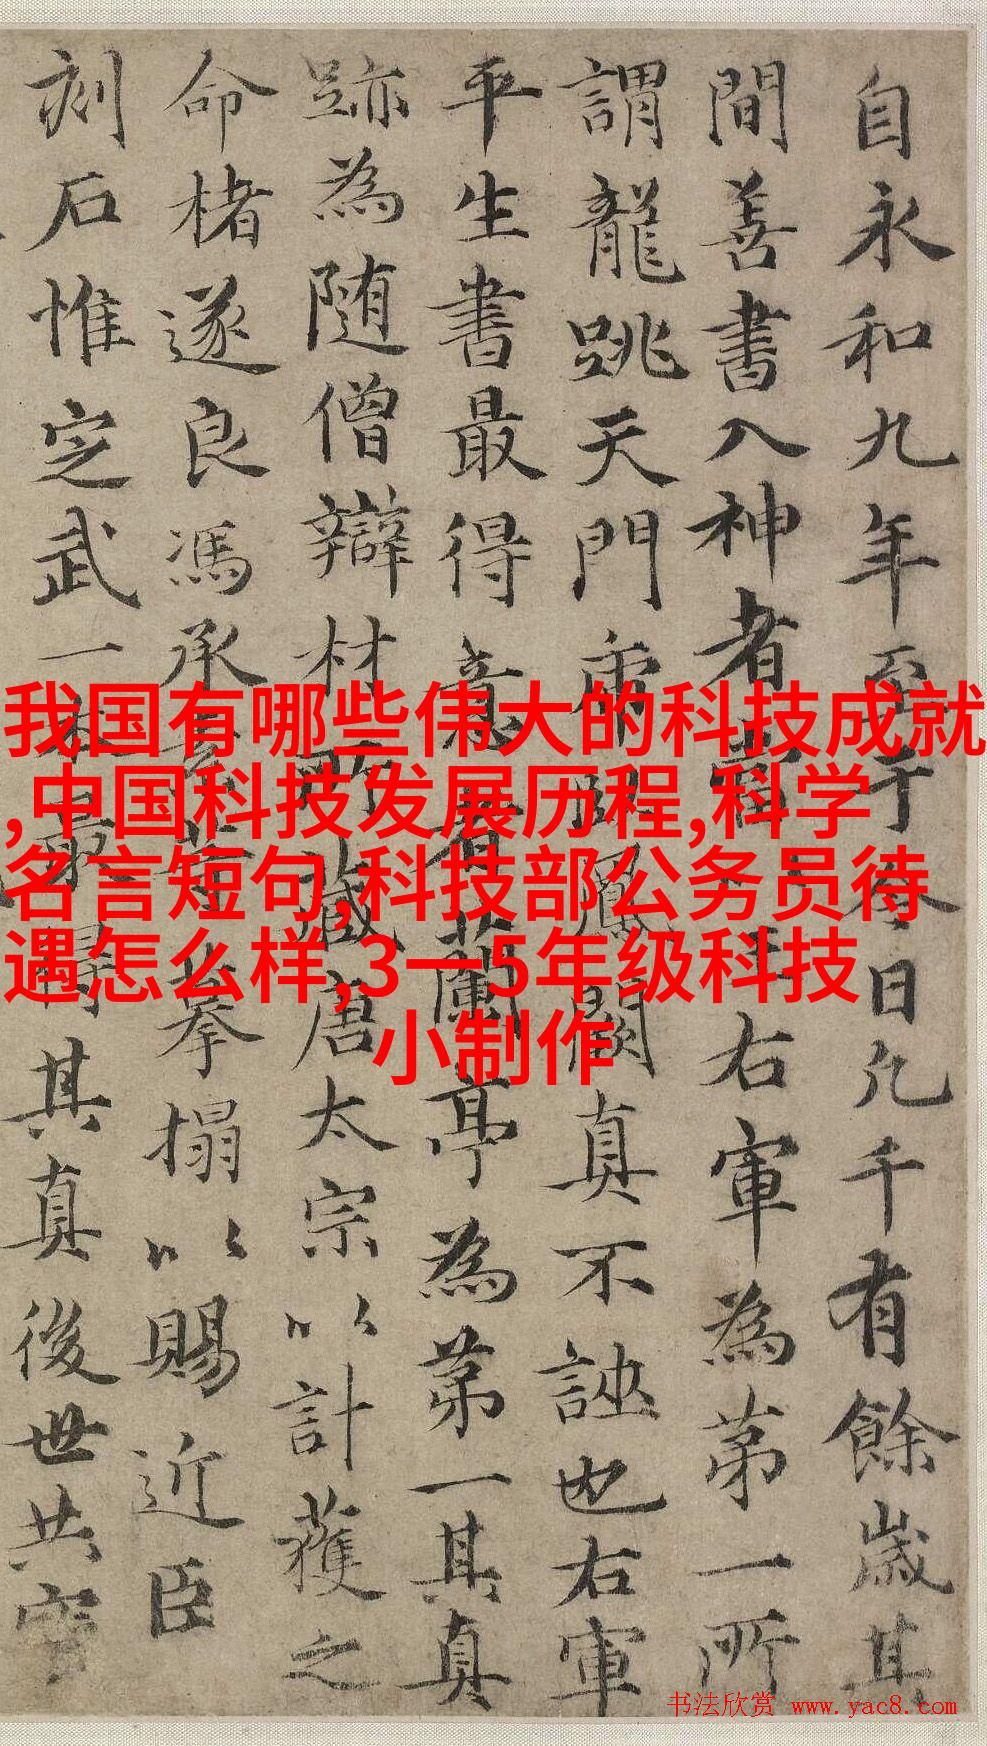 自永和九年至于今日凡千有餘歲其
間善書入神者當王右軍為第一所
謂龍跳天門虎臥鳳閣真不誣也右軍
平生書最得意蘭亭為第一其真
跡為随僧辯材所藏唐太宗以計獲之
命楮遂良馮承素等摹搨以賜近臣
刻石惟定武一本最得其真後世共寶
我国有哪些伟大的科技成就
,中国科技发展历程,科学
名言短句,科技部公务员待
遇怎么样,3一5年级科技
小制作
书法欣赏 www.yac8.com